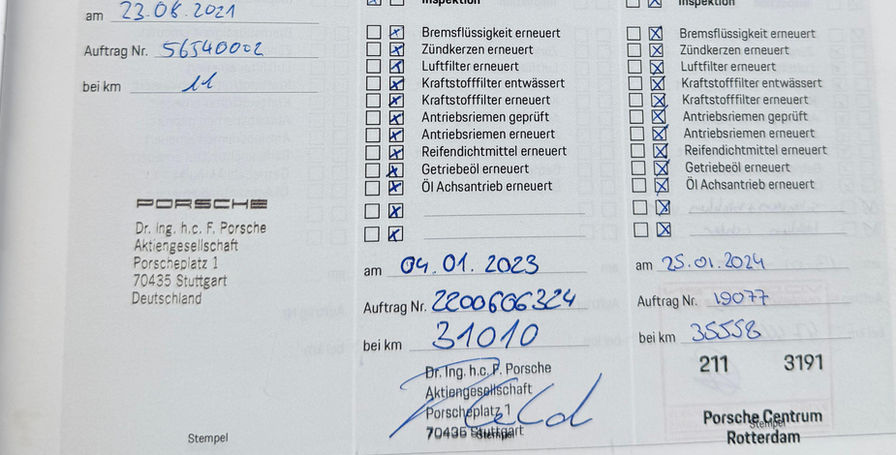 am 23.08.2021
Auftrag Nr. 56540002
bei km 11
PORSCHE
Dr. Ing. h.c. F. Porsche
Aktiengesellschaft
Porscheplatz 1
70435 Stuttgart
Deutschland
Stempel
Inspektion
Bremsflüssigkeit erneuert
Zündkerzen erneuert
Luftfilter erneuert
Kraftstofffilter entwässert
Kraftstofffilter erneuert
Antriebsriemen geprüft
Antriebsriemen erneuert
Reifendichtmittel erneuert
Getriebeöl erneuert
Öl Achsantrieb erneuert
am 04.01.2023
Auftrag Nr. 2200606324
bei km 31010
Dr. Ing. h.c. F. Porsche
Aktiengesellschaft
Porscheplatz 1
70435 Stuttgart
Stempel
Inspektion
Bremsflüssigkeit erneuert
Zündkerzen erneuert
Luftfilter erneuert
Kraftstofffilter entwässert
Kraftstofffilter erneuert
Antriebsriemen geprüft
Antriebsriemen erneuert
Reifendichtmittel erneuert
Getriebeöl erneuert
Öl Achsantrieb erneuert
am 25.01.2024
Auftrag Nr. 19077
bei km 35558
211 3191
Porsche Centrum
Stempel
Rotterdam